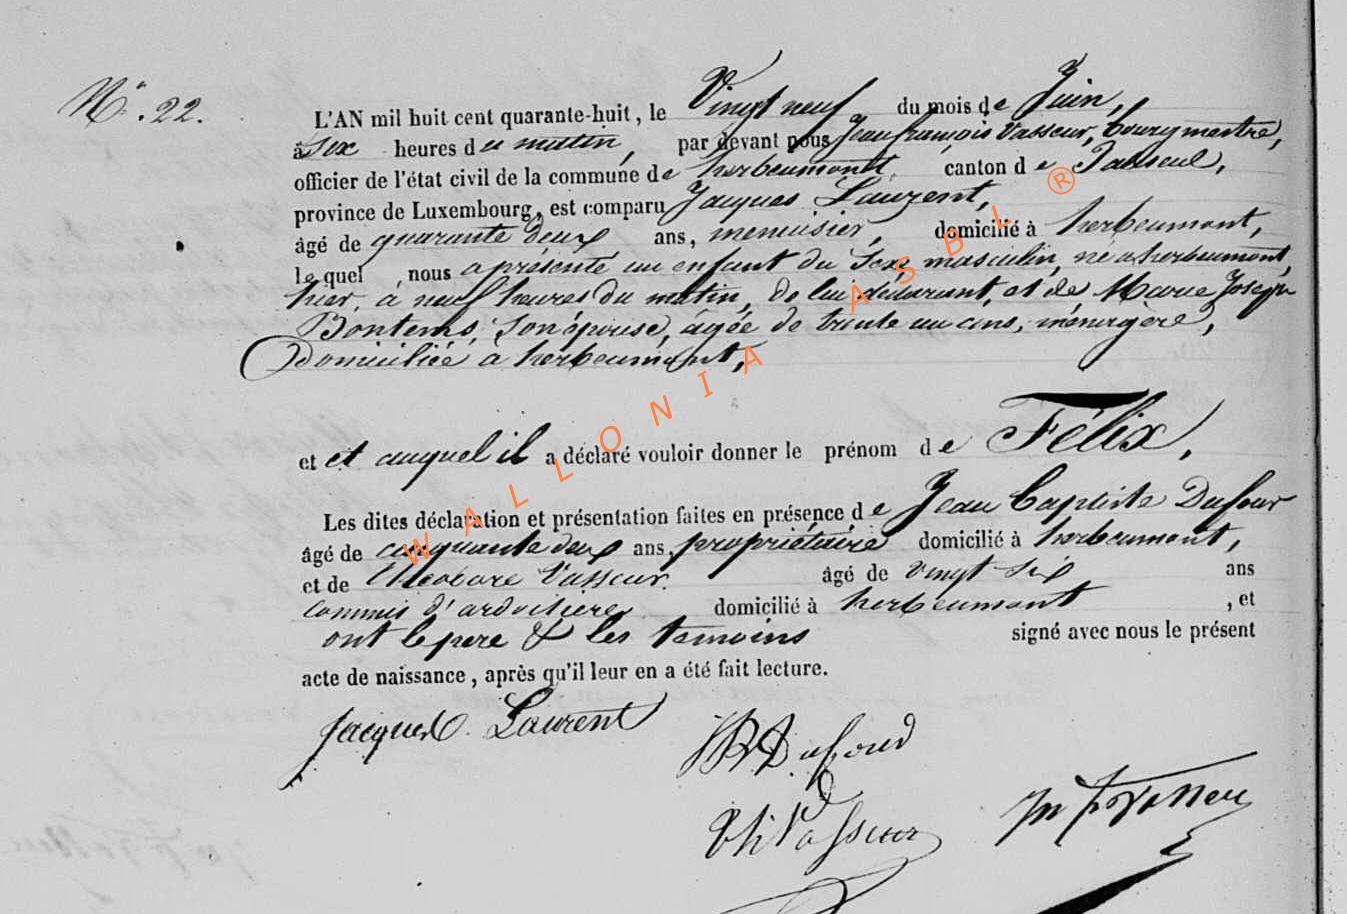 N° . 22.
L'AN mil huit cent quarante-huit, le Vingt neuf du mois de Juin,
à six heures du matin, par devant nous Jean françois Vasseur, bourgmestre,
officier de l'état civil de la commune de herbeumont, canton de Paliseul,
province de Luxembourg, est comparu Jacques Laurent,
âgé de quarante deux ans, menuisier, domicilié à herbeumont,
lequel, nous a présenté un enfant du sexe masculin, né a herbeumont,
hier, à neuf heures du matin, de lui déclarant, et de Marie Joseph
Bontems, son épouse, âgée de trente un ans, ménagere,
Domiciliée a herbeumont,
et et auquel il a déclaré vouloir donner le prénom de Félix,
Les dites déclaration et présentation faites en présence de Jean Baptiste Dufour
âgé de cinquante deux ans, propriétaire domicilié à herbeumont,
et de Théodore Vasseur. âgé de vingt six ans
commis d'ardoisière, domicilié à herbeumont, et
ont le pere & les temoins signé avec nous le présent
acte de naissance, après qu'il leur en a été fait lecture.
Jacques Laurent
JB Dufour
Th Vasseur
WALLONIA ASBL ®